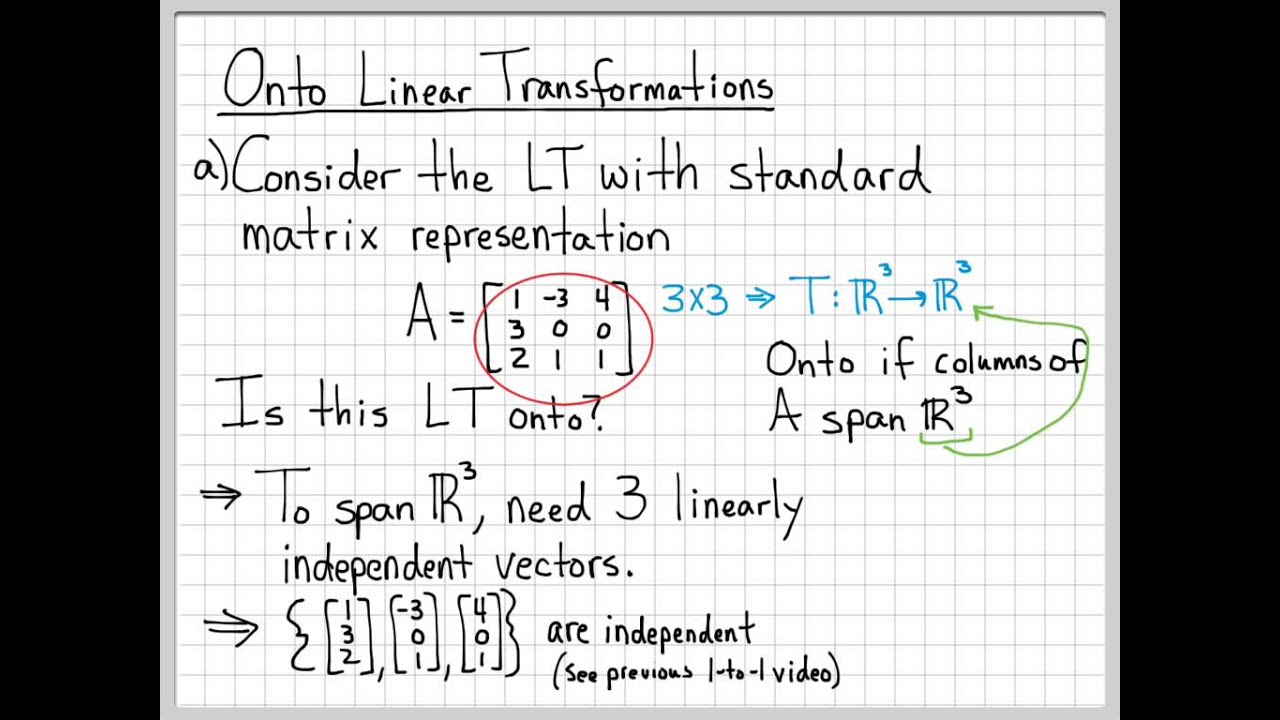 Onto Linear Transformations
a) Consider the LT with standard
matrix representation
A = [1 -3 4
3 0 0
2 1 1]
3x3 ⇒ T: ℝ³ → ℝ³
Onto if columns of
A span ℝ³
Is this LT onto?
⇒ To span ℝ³, need 3 linearly
independent vectors.
⇒ {[1 3 2], [-3 0 1], [4 0 1]} are independent
(see previous 1-to-1 video)